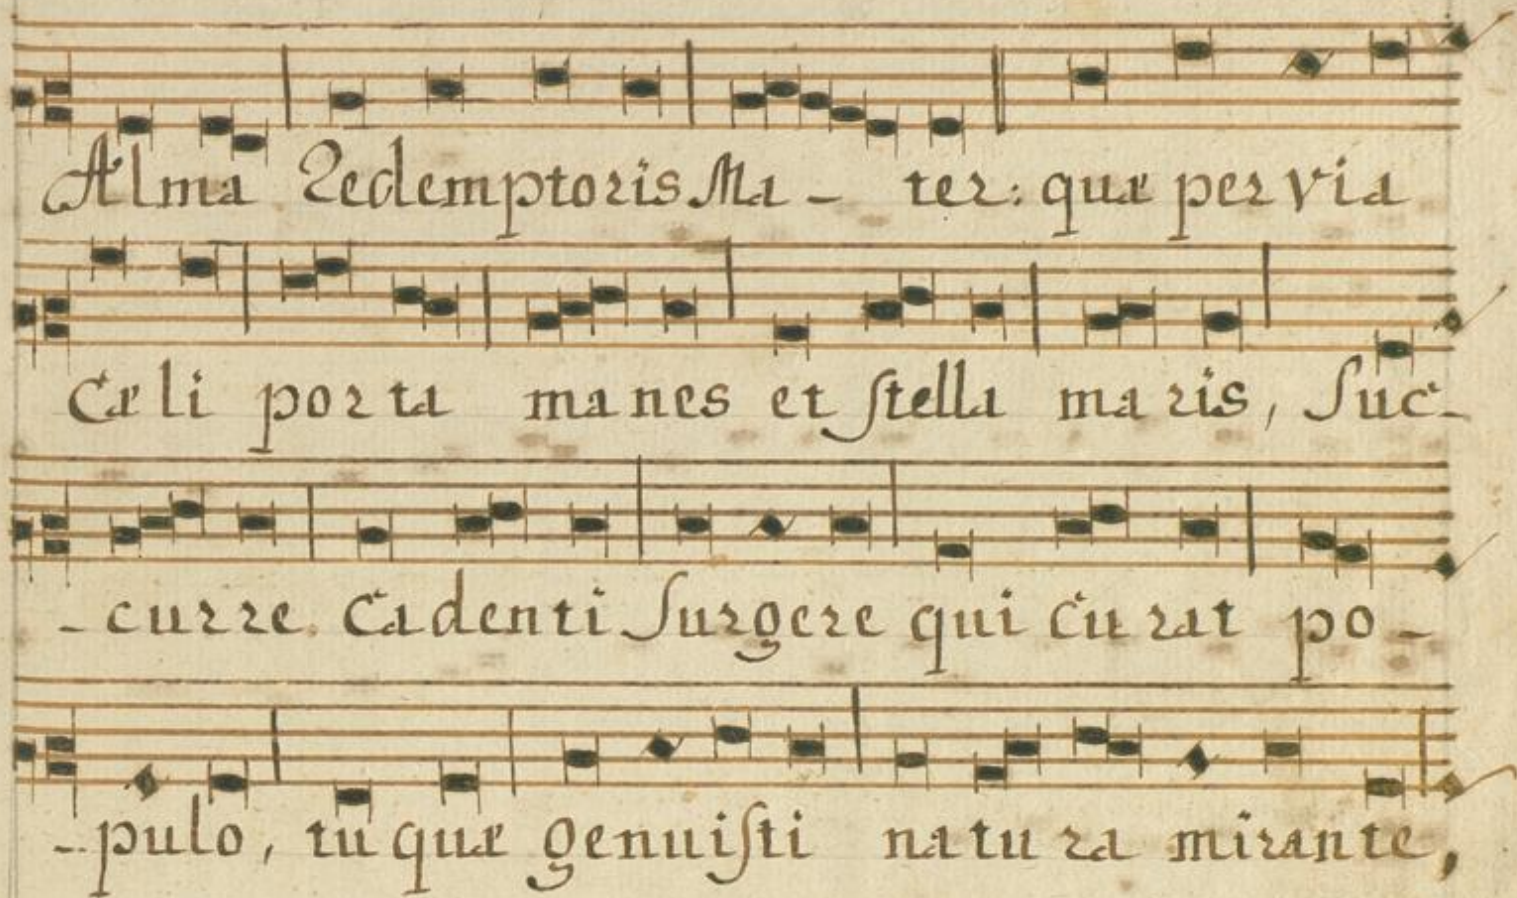 Alma Redemptoris Ma - ter: quæ per via
Cæli porta manes et ſtella maris, Suc-
-curre Cadenti Surgere qui curat po-
-pulo, tu quæ genuiſti natura mirante,